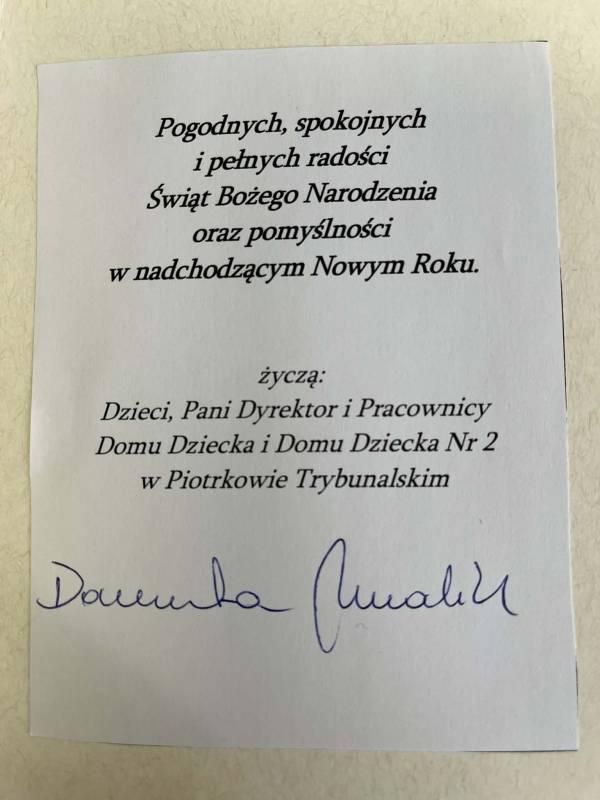 Pogodnych, spokojnych
i pełnych radości
Świąt Bożego Narodzenia
oraz pomyślności
w nadchodzącym Nowym Roku.
życzą:
Dzieci, Pani Dyrektor i Pracownicy
Domu Dziecka i Domu Dziecka Nr 2
w Piotrkowie Trybunalskim